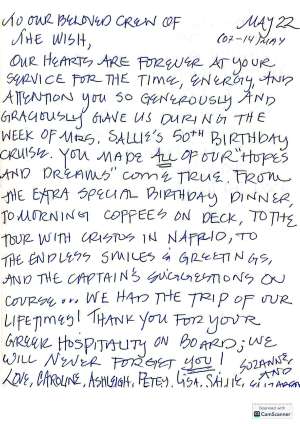 TO OUR BELOVED CREW OF MAY 22
THE WISH, (07-14) MAY
OUR HEARTS ARE FOREVER AT YOUR
SERVICE FOR THE TIME, ENERGY, AND
ATTENTION YOU SO GENEROUSLY AND
GRACIOUSLY GAVE US DURING THE
WEEK OF MRS. SALLIE'S 50TH BIRTHDAY
CRUISE. YOU MADE ALL OF OUR "HOPES
AND DREAMS" COME TRUE. FROM
THE EXTRA SPECIAL BIRTHDAY DINNER,
TO MORNING COFFEES ON DECK, TO THE
TOUR WITH CRISTOS IN NAFPLIO, TO
THE ENDLESS SMILES & GREETINGS,
AND THE CAPTAIN'S SUGGESTIONS ON
COURSE... WE HAD THE TRIP OF OUR
LIFETIMES! THANK YOU FOR YOUR
GREEK HOSPITALITY ON BOARD; WE
WILL NEVER FORGET YOU! SUZANNE,
LOVE, CAROLINE, ASHLEIGH, PETEY, LISA, SALLIE, AND
Scanned with
CamScanner